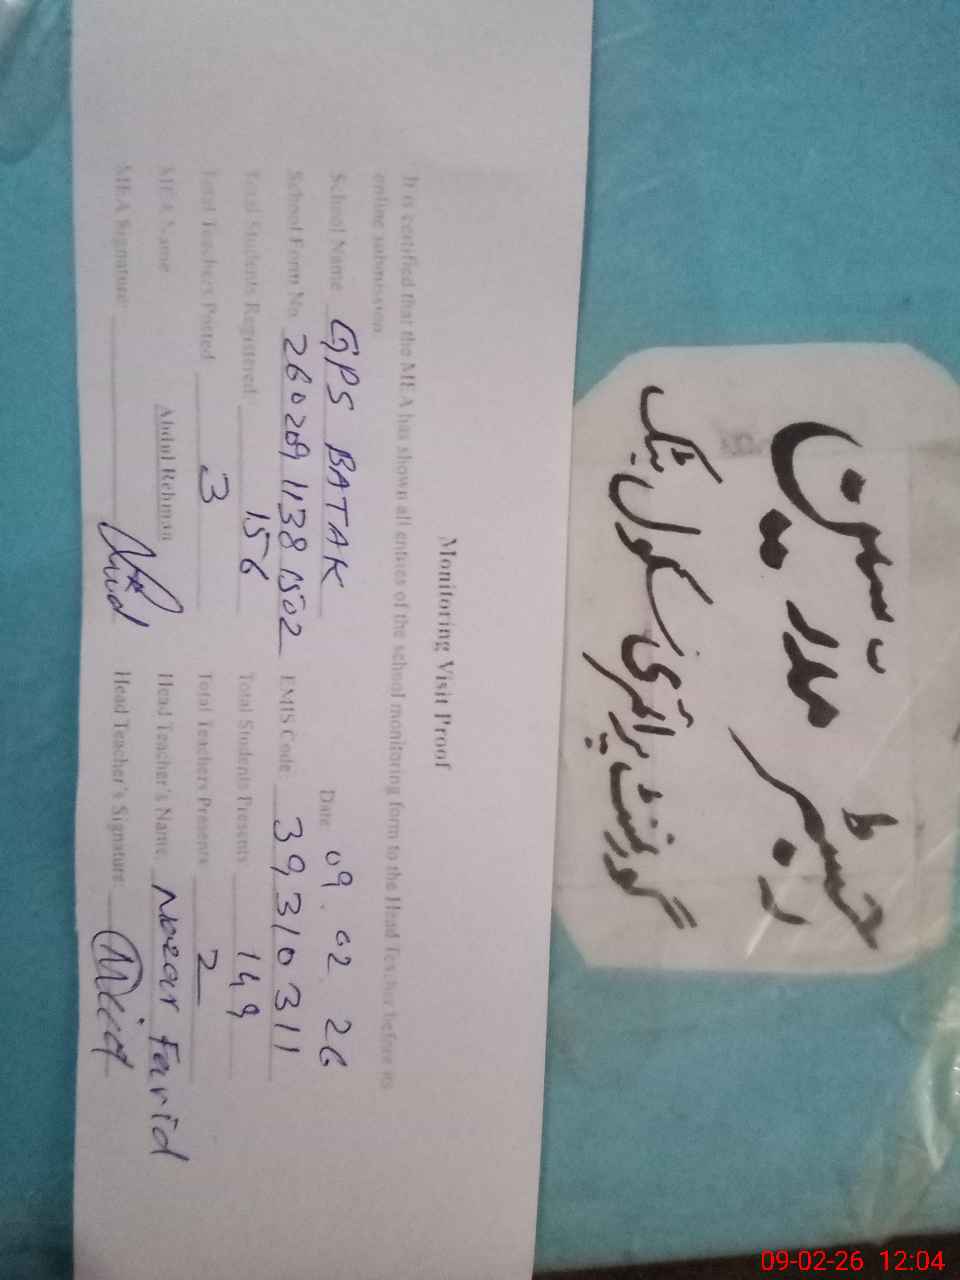 Monitoring Visit Proof
It is certified that the MEA has shown all entries of the school monitoring form to the Head Teacher before its
online submission
Date: 09.02.26
School Name GPS BATAK
School Form No. 26020911381502 EMIS Code: 39310311
Total Students Registered: 156 Total Students Presents: 149
Total Teachers Posted 3 Total Teachers Presents: 2
MEA Name Abdul Rehman Head Teacher's Name: Nozar Farid
MEA Signature: Head Teacher's Signature
رجسٹر مدرسین
گورنمنٹ پرائمری سکول بٹک
09-02-26 12:04